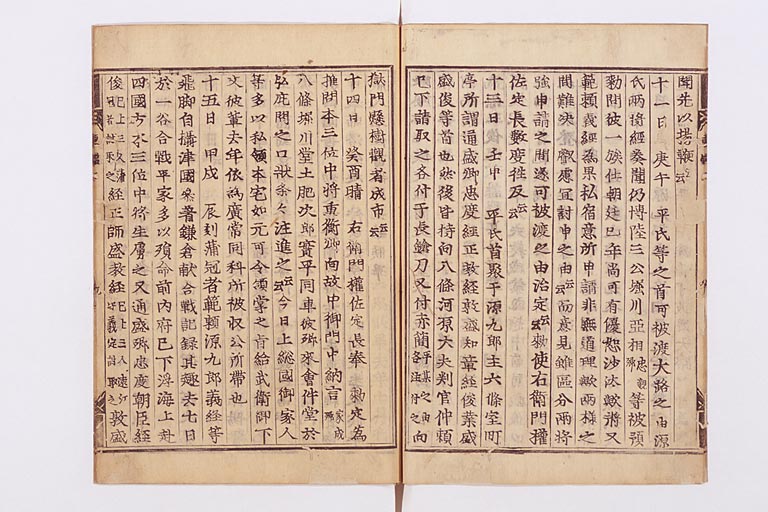 聞先以揚鞭云云
十一日 庚午 平氏等之首可被渡大路之由源
氏兩將經奏聞仍博陸三公堀川亞相忠親卿等被預
勅問彼一族仕朝廷已年尚可有優恕沙汰歟將又
範頼義經為果私宿意所申請非無道理歟兩樣之
間難決叡慮冝計申之由云云而意見雖區分兩將
強申請之間遂可被渡之由治定云云勅使右衛門權
佐定長數度徃反云云
十三日 壬申 平氏首聚于源九郎主六條室町
亭所謂通盛卿忠度經正教經敦盛知章經俊業盛
盛俊等首也然後皆持向八條河原大夫判官仲頼
已下請取之各付于長鎗刀又付赤簡平某之由各注付之向
獄門懸樹觀者成市云云
十四日 癸酉晴 右衛門權佐定長奉 勅定為
推問本三位中將重衡卿向故中御門中納言家成卿
八條堀川堂土肥次郎實平同車彼卿來會件堂於
弘庇問之口狀条々注進之云云今日上総國御家人
等多以私領本宅如元可令領掌之旨給武衛御下
文彼輩去年依為廣常同科所被収公所帶也
十五日 甲戌 辰刻蒲冠者範頼源九郎義經等
飛脚自攝津國参著鎌倉献合戰記録其趣去七日
於一谷合戰平家多以殞命前内府已下浮海上赴
四國方本三位中將生虜之又通盛卿忠度朝臣經
俊已上三人蒲冠者討取之經正師盛教經已上三人遠江守義定討取之敦盛